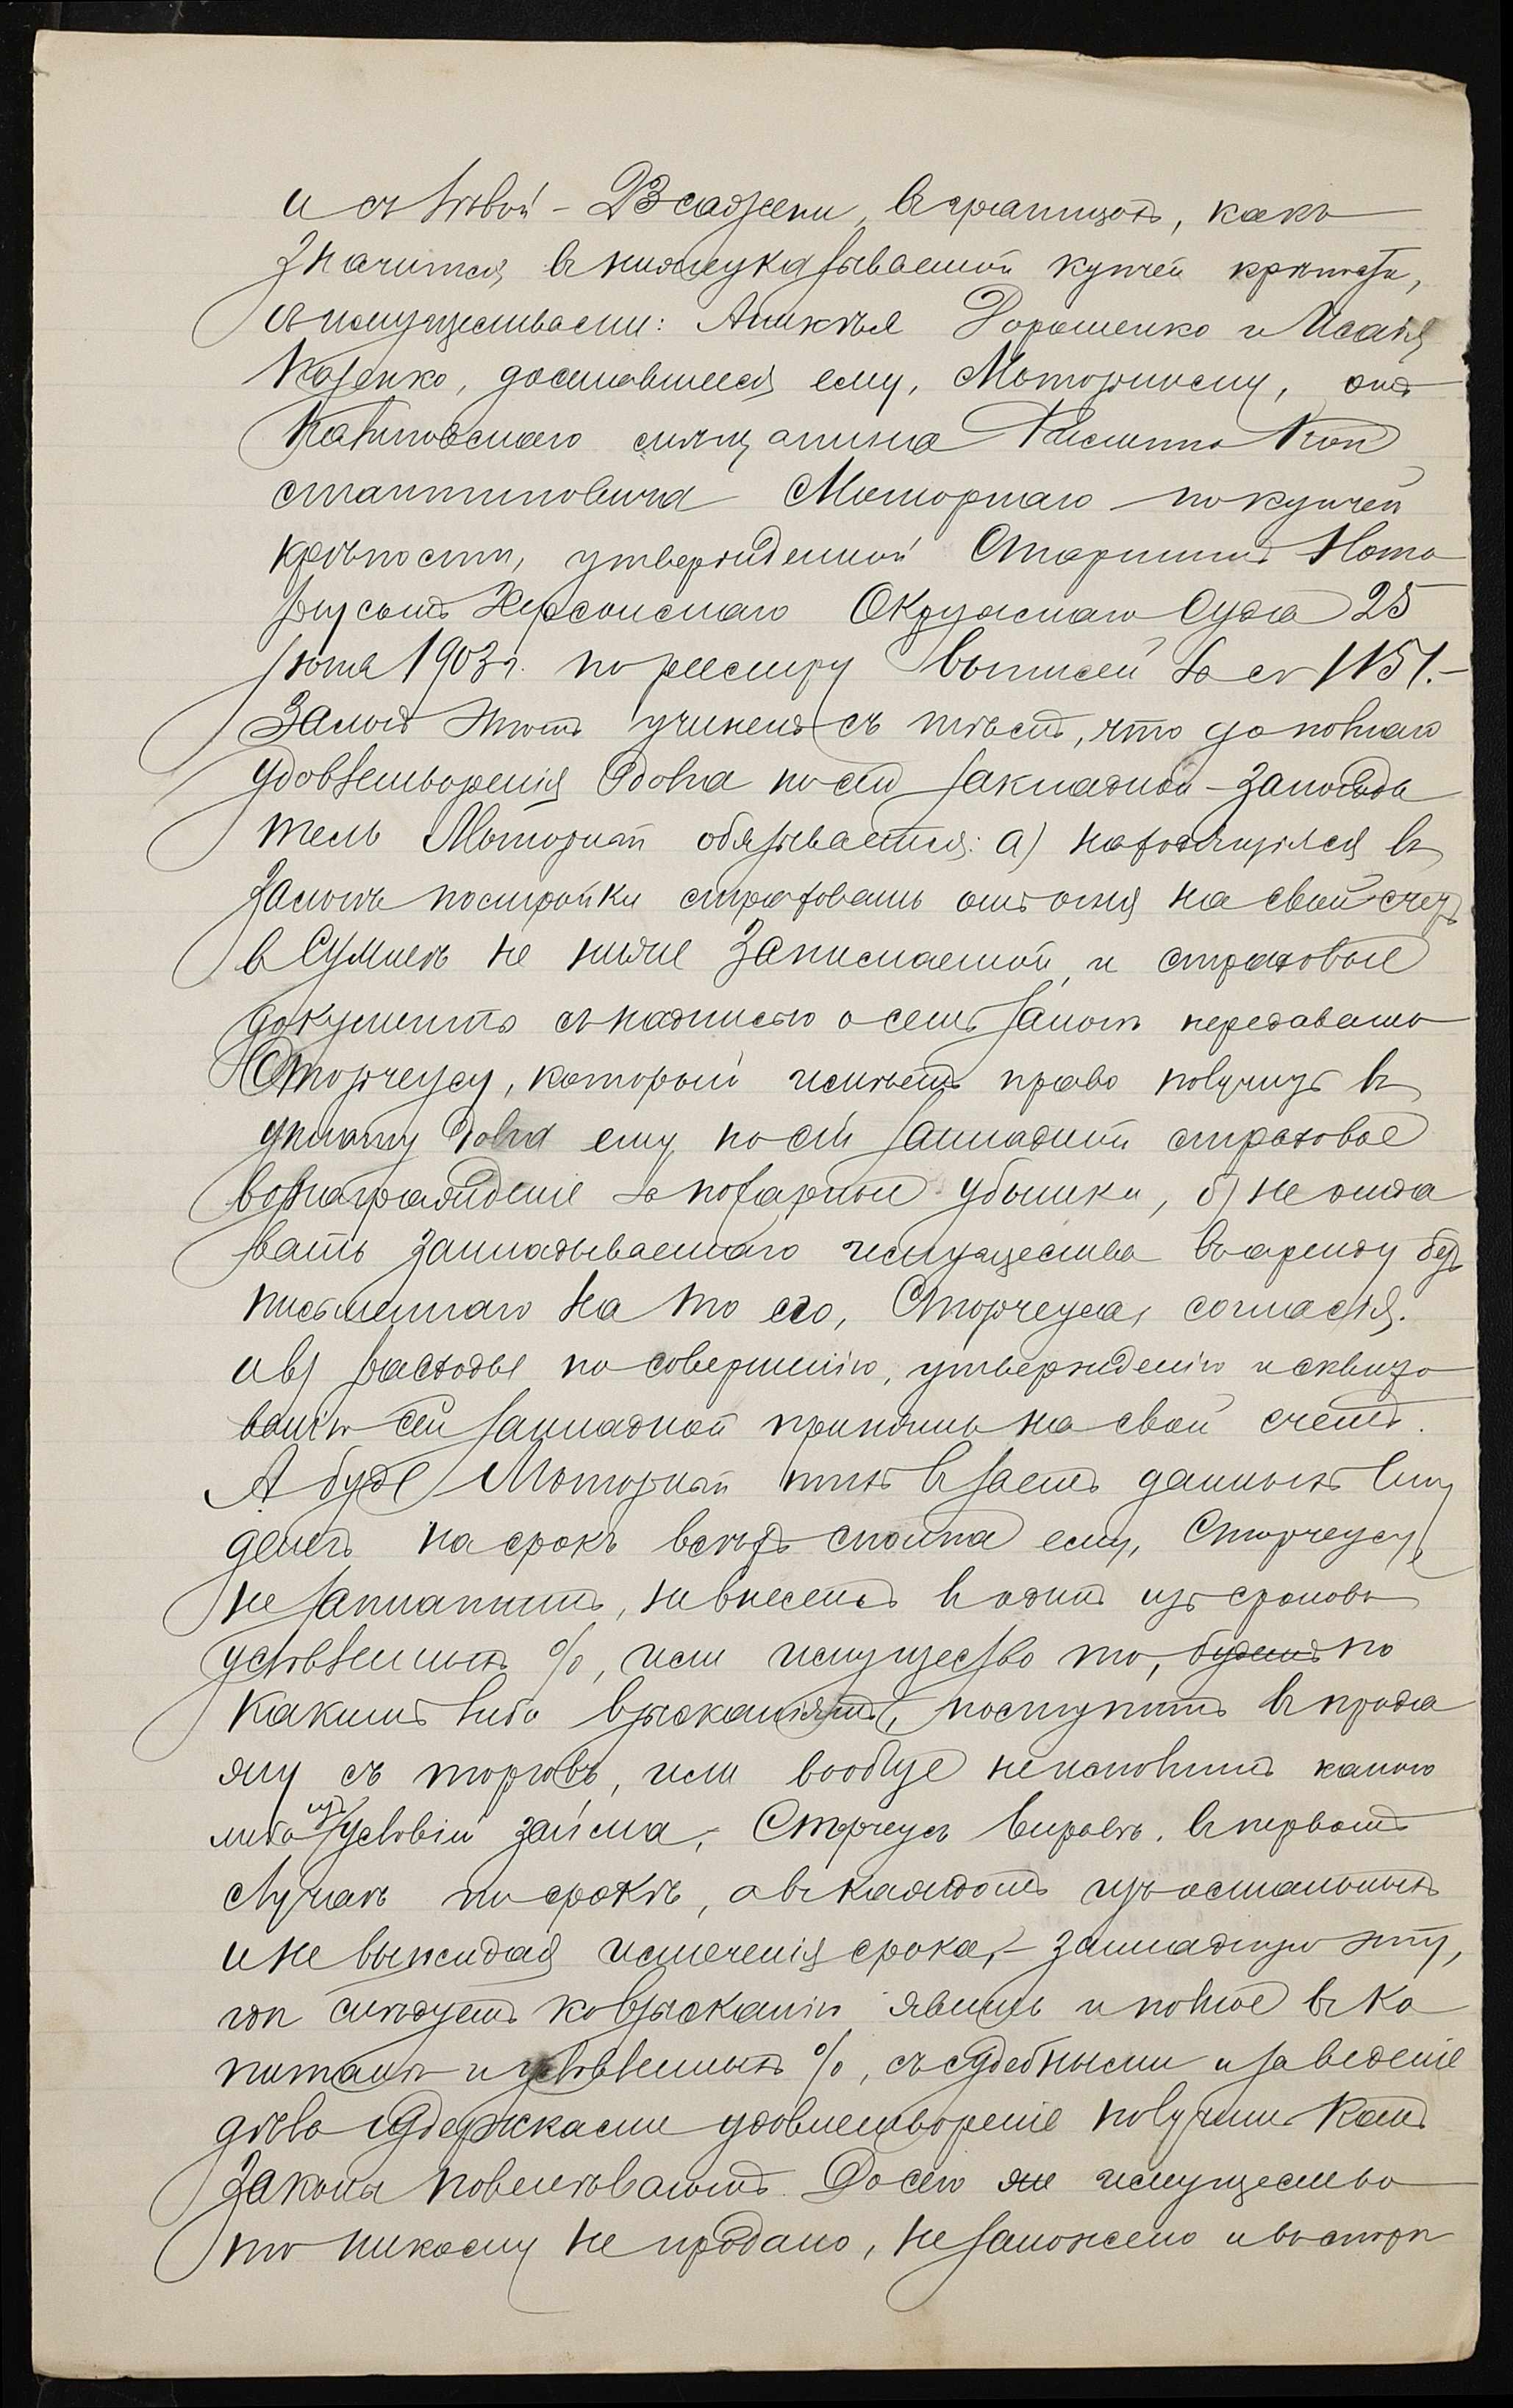 и съ лѣвой - 23 сажени, въ границахъ, какъ
значится, въ нижеуказываемой купчей крѣпости,
съ имуществами: Алексѣя Дорошенко и Исаія
Козенко, доставшееся ему, Моторному, отъ
мѣщанина Кон
стантиновича Моторнаго по купчей
крѣпости, утвержденной Старшимъ Нота
ріусомъ Херсонскаго Окружнаго Суда 25
1903 г. по реестру выписей за № 1151.-
Залогъ этотъ учиненъ съ тѣмъ, что до полнаго
удовлетворенія долга по сей закладной - залогода
тель Моторный обязывается: а) находящіяся въ
залогѣ постройки страховать отъ огня на свой счетъ
въ суммѣ не ниже записываемой, и страховые
документы съ надписью о семъ залогѣ передавать
Сторчеусу, который имѣетъ право получить въ
уплату долга ему по сей закладной страховое
вознагражденіе за пожарные убытки, б) не отда
вать закладываемаго имущества въ аренду безъ
письменнаго на то его, Сторчеуса, согласія.
и в) расходы по совершенію, утвержденію и скви
ванію сей закладной принять на свой счетъ.
А буде Моторный тѣхъ взаемъ данныхъ ему
денегъ на срокъ всѣхъ сполна ему, Сторчеусу,
не заплатитъ, не внесетъ въ одинъ изъ сроковъ
условленныхъ %, или имущество то, будетъ по
какимъ либо взысканіямъ, поступитъ въ прода
жу съ торговъ, или вообще не исполнитъ какого
либо изъ условій займа, Сторчеусъ вправѣ, въ первомъ
случаѣ по срокѣ, а въ каждомъ изъ остальныхъ
и не выжидая истеченія срока, - закладную эту,
гдѣ слѣдуетъ ко взысканію явить и полное въ ка
питалѣ и условленныхъ %, съ судебными и за веденіе
дѣла издержками удовлетвореніе получить какъ
законы повелѣваютъ. До сего же имущество
то никому не продано, не заложено и въ спорѣ